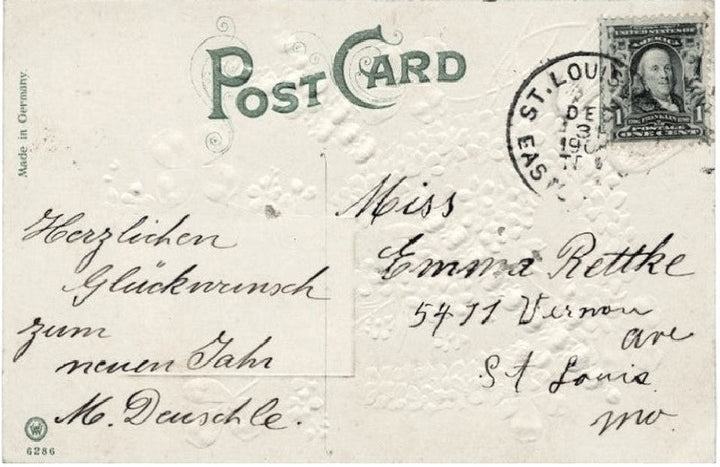 POST CARD
Made in Germany.
UNITED STATES OF
AMERICA
FRANKLIN
POSTAGE
1 ONE CENT 1
EAST ST. LOUIS
DE
31
190
Miss
Emma Rettke
5411 Vernon
Ave
St Louis
Mo.
Herzlichen
Glückwunsch
zum
neuen Jahr
M. Deuschle.
6286